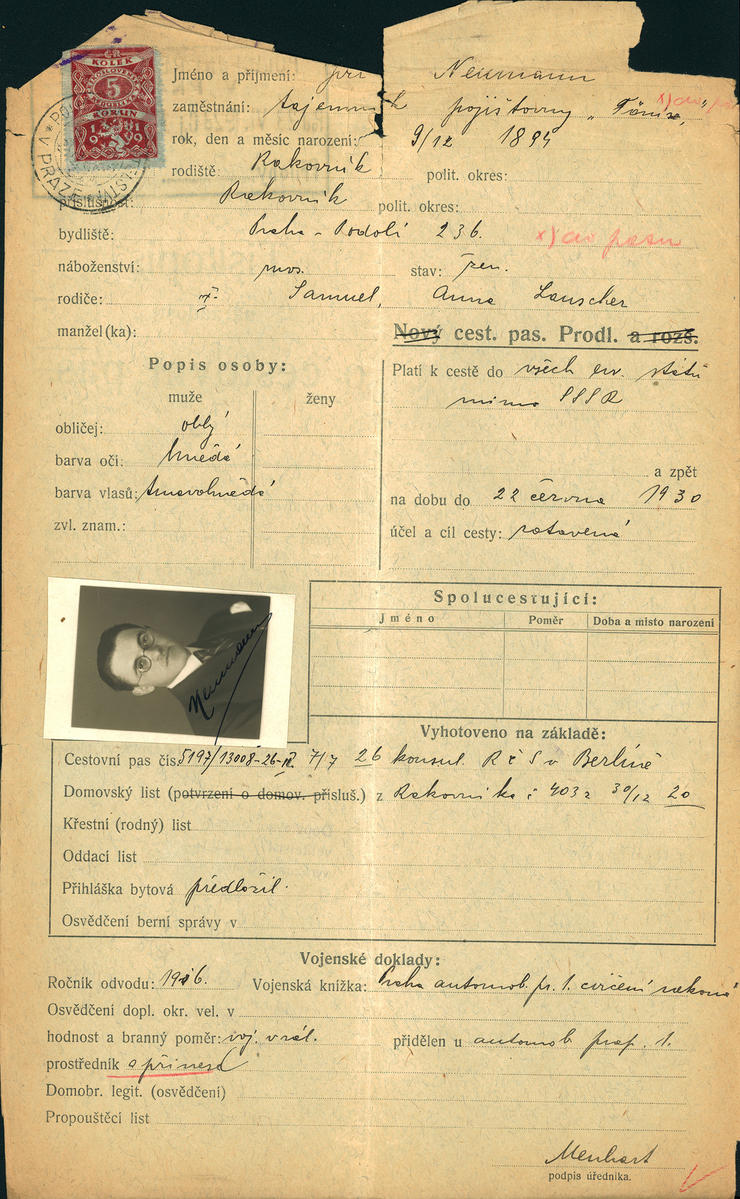 ČR
KOLEK
5
KORUN
1 9
PRAZE
Jméno a příjmení: Neumann
zaměstnání: tajemník pojišťovny „
x) do pa
rok, den a měsíc narození: 9/12 1894
rodiště: Rakovník polit. okres:
příslušnost: Rakovník polit. okres:
bydliště: Praha - Podolí 236.
x) do pasu
náboženství: mos. stav: žen.
rodiče: Samuel, Anna Lauscher
manžel(ka):
Nový cest. pas. Prodl. a rozš.
Popis osoby:
muže ženy
obličej: oblý
barva očí: hnědá
barva vlasů: tmavohnědá
zvl. znam.:
Platí k cestě do všech ev. států
mimo SSSR
a zpět
na dobu do 22 června 1930
účel a cíl cesty: zotavená
Neumann
Spolucestující:
Jméno Poměr Doba a místo narození
Vyhotoveno na základě:
Cestovní pas čís. 5197/13008-26- 7/7 26 konsul. R č S v Berlíně
Domovský list (potvrzení o domov. přísluš.) z Rakovníka č 403 z 30/12 20
Křestní (rodný) list
Oddací list
Přihláška bytová předložil.
Osvědčení berní správy v
Vojenské doklady:
Ročník odvodu: 1916. Vojenská kniížka: Praha automob. pr. 1. cvičení
Osvědčení dopl. okr. vel. v
hodnost a branný poměr: voj. v zál. přidělen u automob. prap. 1.
prostředník a přinesl
Domobr. legit. (osvědčení)
Propouštěcí list
Menhart
podpis úředníka.